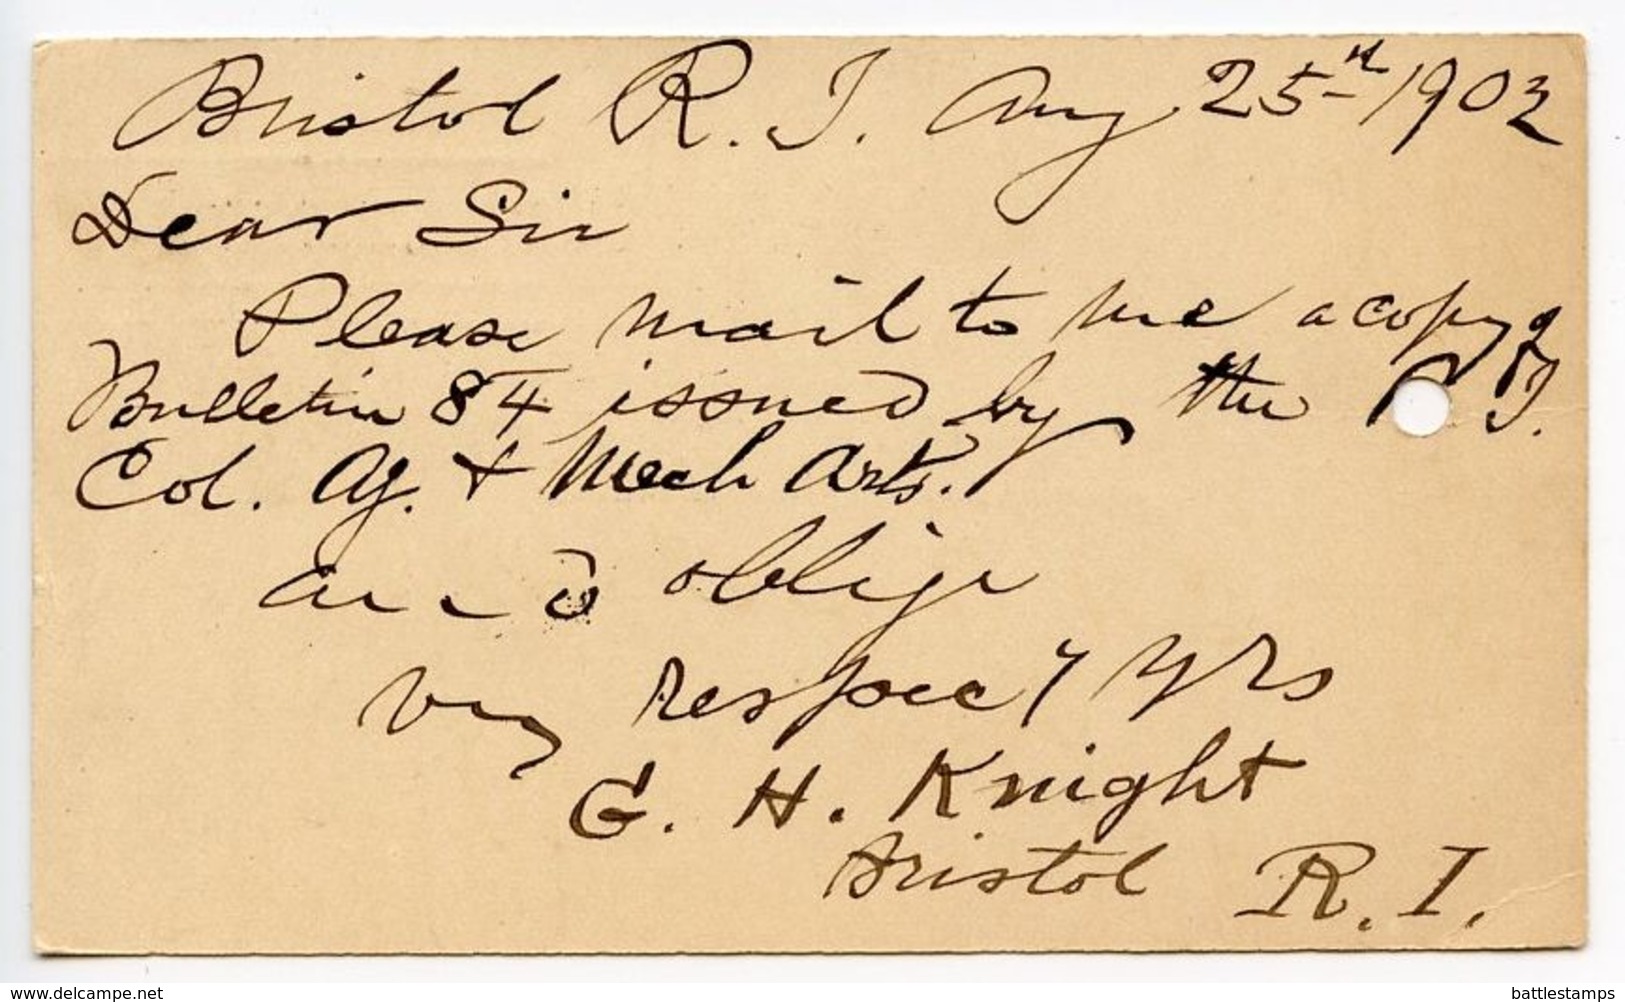 Bristol R. I. Aug 25th 1902
Dear Sir
Please mail to me a copy of
Bulletin 84 issued by the R. I.
Col. Ag. + Mech Arts.
and oblige
very respect'y yrs
G. H. Knight
Bristol R. I.
www.delcampe.net
battlestamps